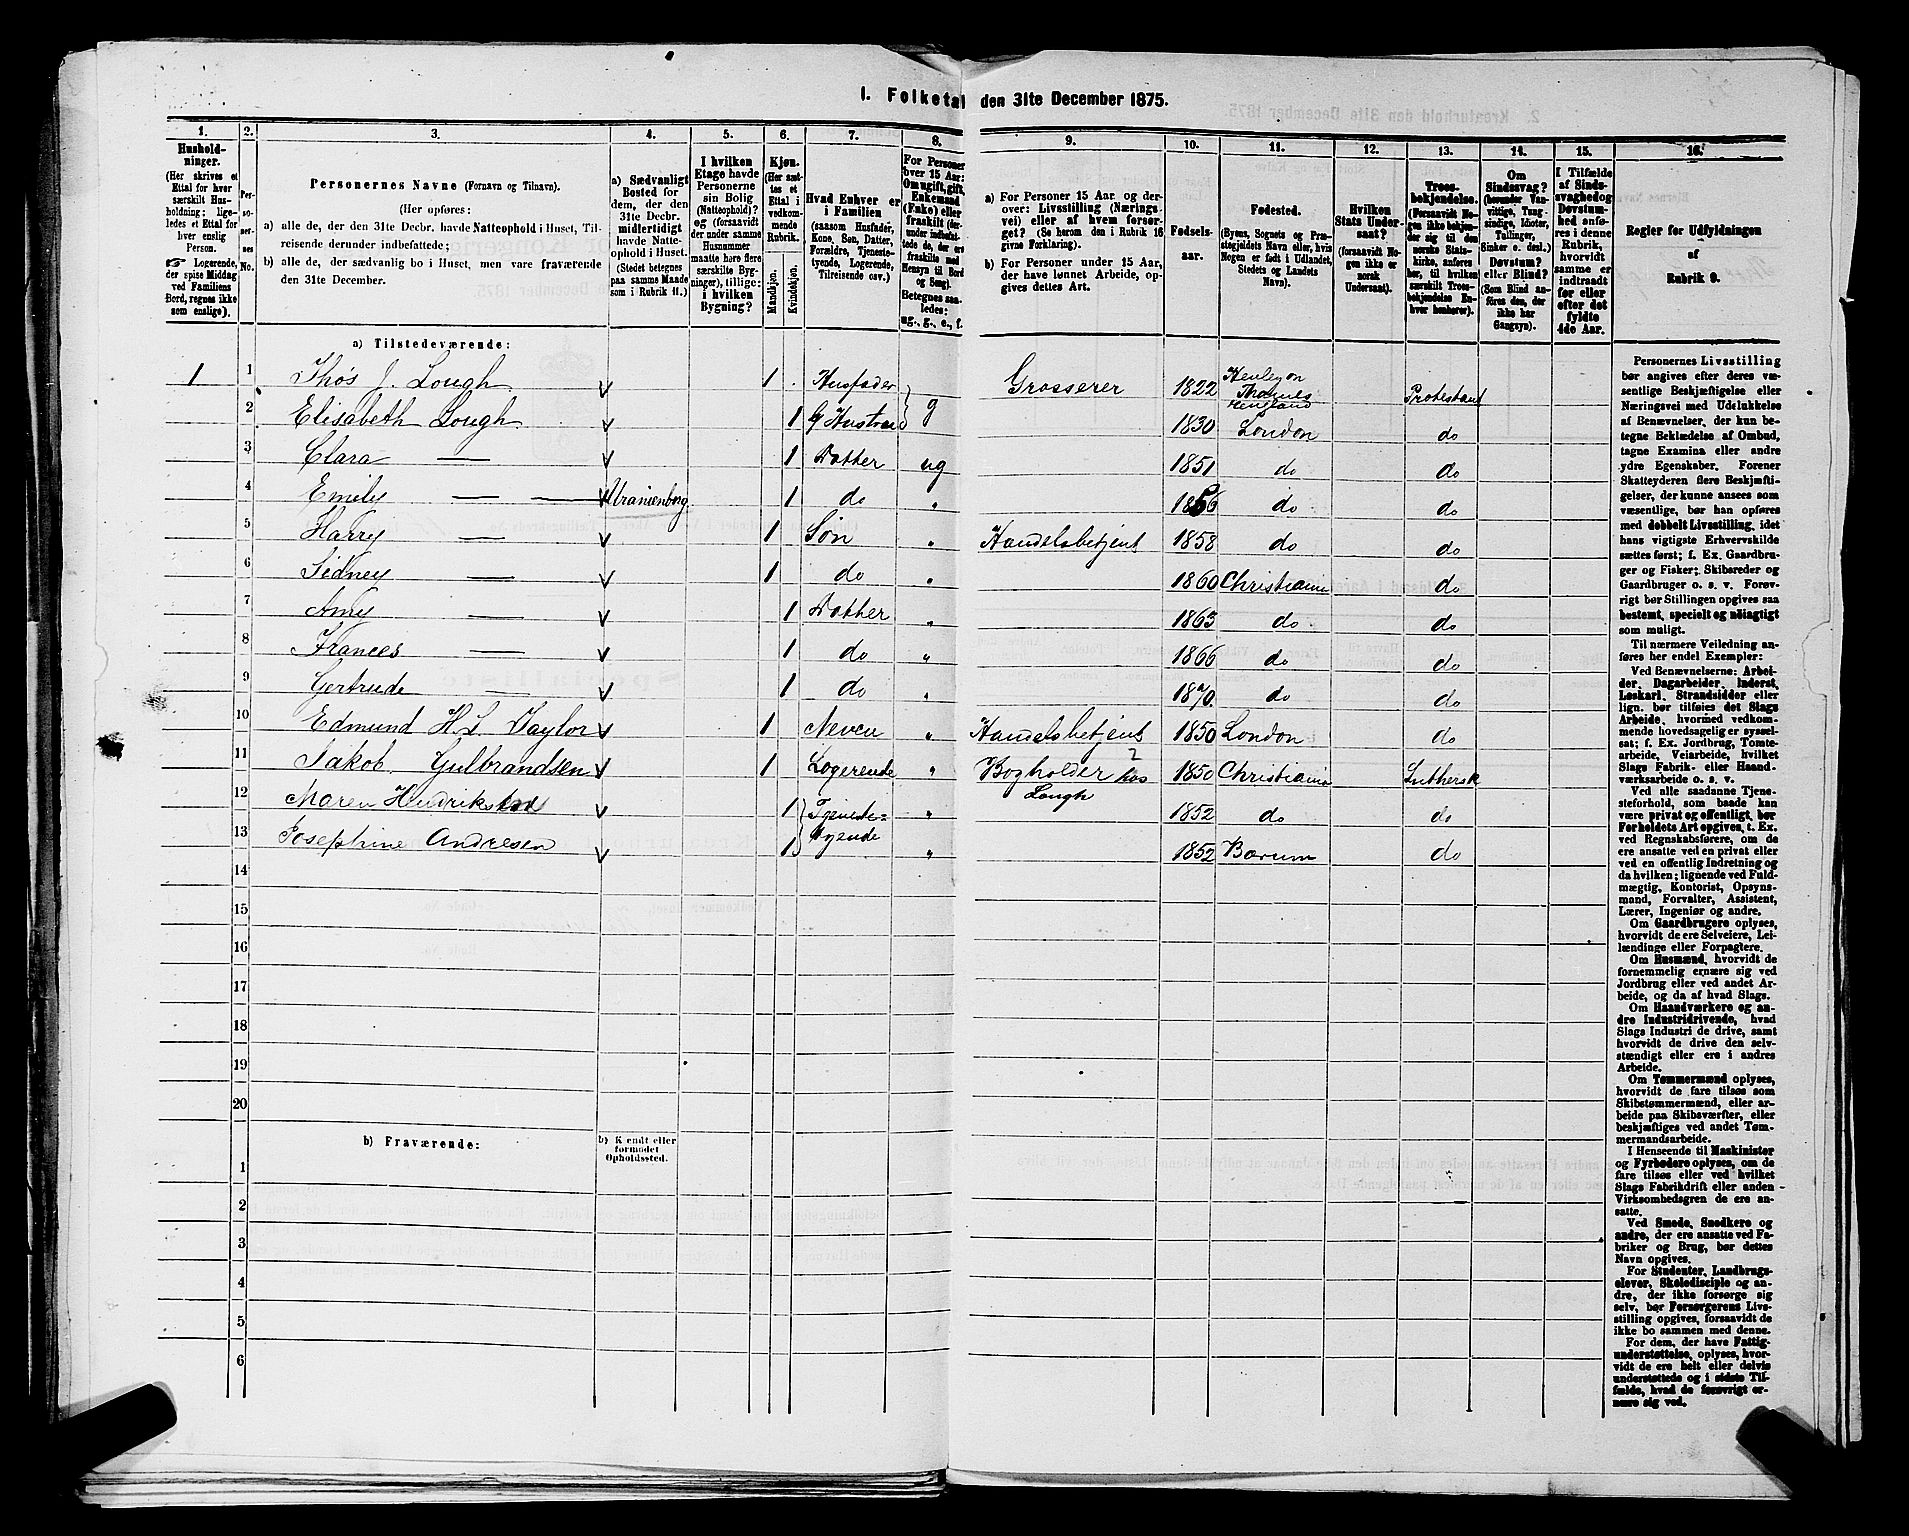 I. Folketal den 31te December 1875.
1. 2. 3. 4. 5. 6. 7. 8. 9. 10. 11. 12. 13. 14. 15. 16.
Husholdninger.
(Her skrives et
Ettal for hver
særskilt Husholdning;
ligeledes
et Ettal for
hver enslig
Person.
☞ Logerende,
der spise Middag
ved Familiens
Bord, regnes ikke
som enslige).
Personernes No.
Personernes Navne (Fornavn og Tilnavn).
(Her opføres:
a) alle de, der den 31te Decbr. havde Natteophold i Huset, Tilreisende
derunder indbefattede;
b) alle de, der sædvanlig bo i Huset, men vare fraværende
den 31te December.
a) Sædvanligt
Bosted for
dem, der den
31te Decbr.
midlertidigt
havde Natteophold
i Huset.
(Stedet betegnes
paa samme Maade
som i Rubrik 11.)
I hvilken
Etage havde
Personerne
sin Bolig
(Natteophold)?
og (forsaavidt
der under samme
Husnummer
maatte høre flere
særskilte Bygninger),
tillige:
i hvilken
Bygning?
Kjøn.
(Her sættes
et
Ettal i
vedkommende
Rubrik.
Mandkjøn.
Kvindekjøn.
Hvad Enhver er
i Familien
(saasom Husfader,
Kone, Søn, Datter,
Forældre, Tjenestetyende,
Logerende,
Tilreisende osv.)
For Personer
over 15 Aar:
Om ugift, gift,
Enkemand
(Enke) eller
fraskilt
Betegnes saaledes:
ug., g., e., f.
a) For Personer 15 Aar og derover:
Livsstilling (Næringsvei)
eller af hvem forsørget?
(Se herom den i Rubrik 16
givne Forklaring).
b) For Personer under 15 Aar,
der have lønnet Arbeide, opgives
dettes Art.
Fødselsaar.
Fødested.
(Byens, Sognets og Præstegjeldets
Navn eller, hvis
Nogen er født i Udlandet,
Stedets og Landets
Navn).
Hvilken
Stats Undersaat?
(forsaavidt Nogen
ikke er
norsk
Undersaat).
Troesbekjendelse.
(Forsaavidt Nogen
ikke bekjender
sig til den
norske Statskirke,
anføres
her, til hvilken
særskilt Troesbekjendelse
Enhver
henhører).
Om
Sindssvag?
(herunder Vanvittige,
Tungsindige,
Idioter,
Tullinger,
Sinker o. desl.)
Døvstum?
eller Blind?
(Som Blind anføres
den, der
ikke har
Gangsyn).
I Tilfælde
af Sindssvaghed
og
Døvstumhed
anføres
i denne
Rubrik,
hvorvidt
samme er
indtraadt
før eller
efter det
fyldte
4de Aar.
Regler for Udfyldningen
af
Rubrik 9.
a) Tilstedeværende:
1 1 Thos J. Lough 1 Husfader g Grosserer 1822 Henley on Thames England Protestant
2 Elisabeth Lough 1 G Hustru 1830 London do
3 Clara — 1 Datter ug 1851 do do
4 Emily — — Uranienborg 1 do " 1856 do do
5 Harry — 1 Søn " Handelsbetjent 1858 do do
6 Sidney — 1 do " 1860 Christiania do
7 Amy — 1 Datter " 1863 do do
8 Frances — 1 do " 1866 do do
9 Gertrude — 1 do " 1870 do do
10 Edmund H. L. Taylor 1 Neveu " Handelsbetjent 1850 London do
11 Jakob Gulbrandsen 1 Logerende " Bogholder hos Lough 1850 Christiania Luthersk
12 Maren 1 Tjenestetyende " 1852 do do
13 Josephine Andresen 1 " 1852 Bærum do
14
15
16
17
18
19
20
b) Fraværende:
b) Kjendt eller
formodet
Opholdssted.
1
2
3
4
5
6
Personernes Livsstilling
bør angives efter deres væsentlige
Beskjæftigelse eller
Næringsvei med Udelukkelse
af Benævnelser, der kun betegne
Beklædelse af Ombud,
tagne Examina eller andre
ydre Egenskaber. Forener
Skatteyderen flere Beskjæftigelser,
der kunne ansees som
væsentlige, bør han opføres
med dobbelt Livsstilling, idet
hans vigtigste Erhvervskilde
sættes først; f. Ex. Gaardbruger
og Fisker; Skibsreder og
Gaardbruger o. s. v. Forøvrigt
bør Stillingen opgives saa
bestemt, specielt og nøiagtigt
som muligt.
Til nærmere Veiledning anføres
her endel Exempler:
Ved Benævnelserne: Arbeider,
Dagarbeider, Inderst,
Løskarl, Strandsidder eller
lign. bør tilføies det Slags
Arbeide, hvormed vedkommende
hovedsagelig er sysselsat;
f. Ex. Jordbrug, Tomtearbeide,
Veiarbeide, hvilket
Slags Fabrik- eller Haandværksarbeide
o. s. v.
Ved alle saadanne Tjenesteforhold,
som baade kan
være privat og offentligt, bør
Forholdets Art opgives, t. Ex.
ved Regnskabsførere, om de
ere ansatte ved en privat eller
ved en offentlig Indretning og
da hvilken; lignende ved Fuldmægtig,
Kontorist, Opsynsmand,
Forvalter, Assistent,
Lærer, Ingeniør og andre.
Om Gaardbrugere oplyses,
hvorvidt de ere Selveiere, Leilændinge
eller Forpagtere.
Om Husmænd, hvorvidt de
fornemmelig ernære sig ved
Jordbrug eller ved andet Arbeide,
og da af hvad Slags.
Om Haandværkere og andre
Industridrivende, hvad
Slags Industri de drive, samt
hvorvidt de drive den selvstændigt
eller ere i andres
Arbeide.
Om Tømmermænd oplyses,
hvorvidt de fare tilsøs som
Skibstømmermænd, eller arbeide
paa Skibsværfter, eller
beskjæftiges ved andet Tømmermandsarbeide.
I Henseende til Maskinister
og Fyrbødere oplyses, om de
fare tilsøs eller ved hvilket
Slags Fabrikdrift eller anden
Virksomhed de ere ansatte.
Ved Smede, Snedkere og
andre, der ere ansatte ved Fabriker
og Brug, bør dettes
Navn opgives.
For Studenter, Landbrugselever,
Skoledisciple og andre,
der ikke forsørge sig
selv, bør Forsørgerens Livsstilling
opgives, forsaavidt de
ikke bo sammen med denne.
For dem, der have Fattigunderstøttelse,
oplyses, hvorvidt
de ere helt eller delvis
understøttede og i sidste Tilfælde,
hvad de forøvrigt ernære
sig ved.